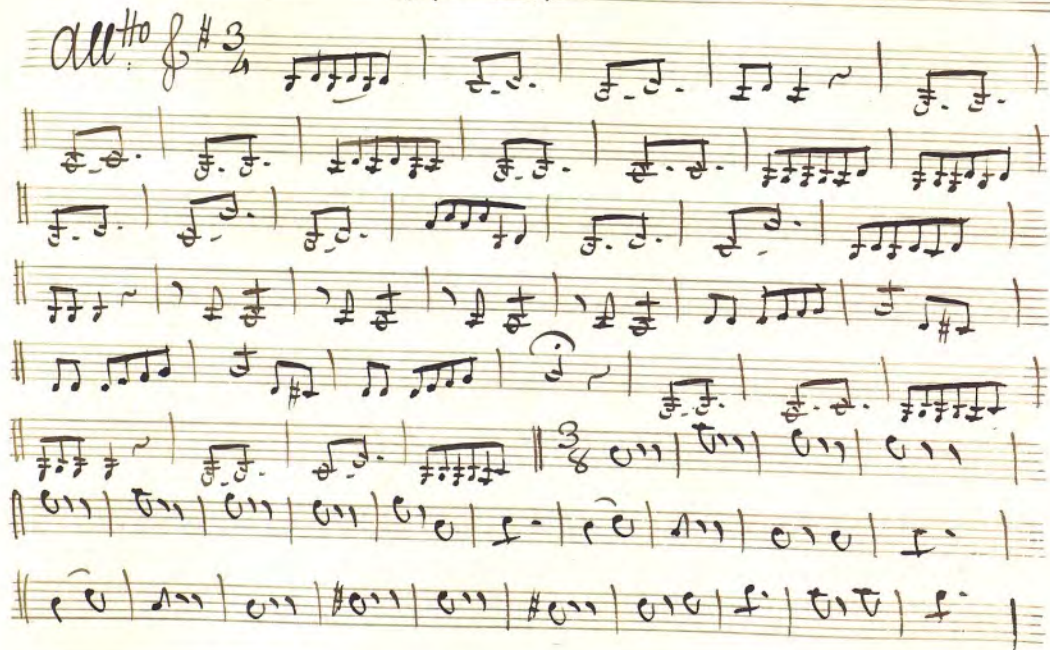 All.tto 3 4
3 8